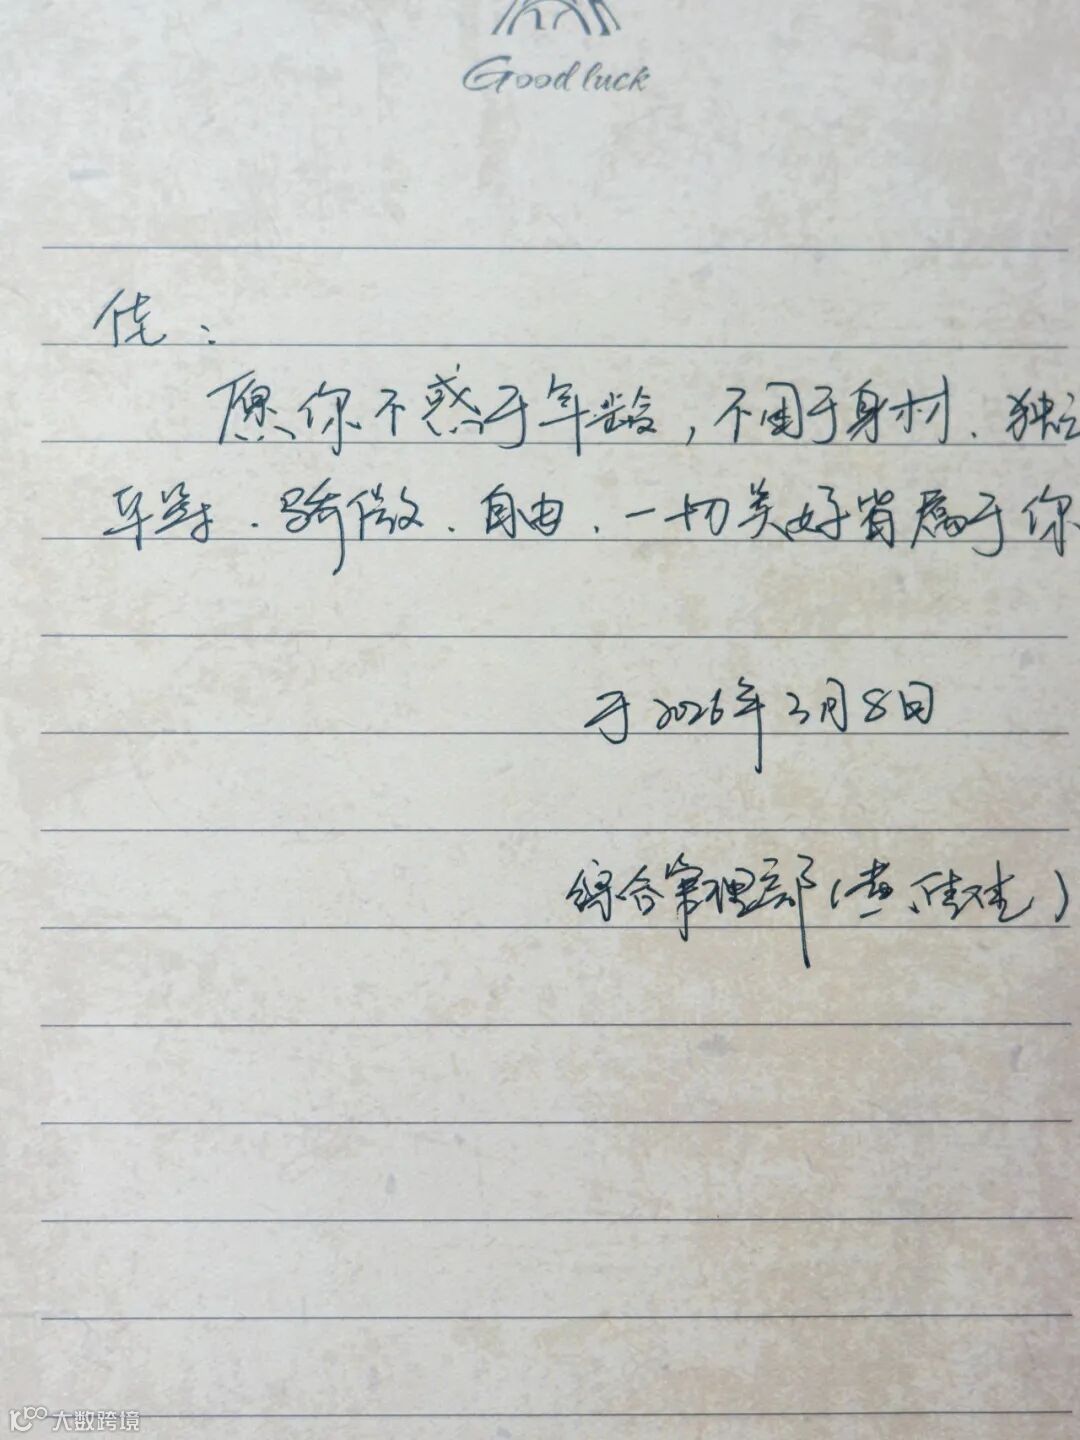 Good luck
佳：
愿你不惑于年龄，不困于身材、独立
平等、骄傲、自由、一切美好皆属于你
于2026年3月8日
综合管理部（黄佳佳）
大数跨境